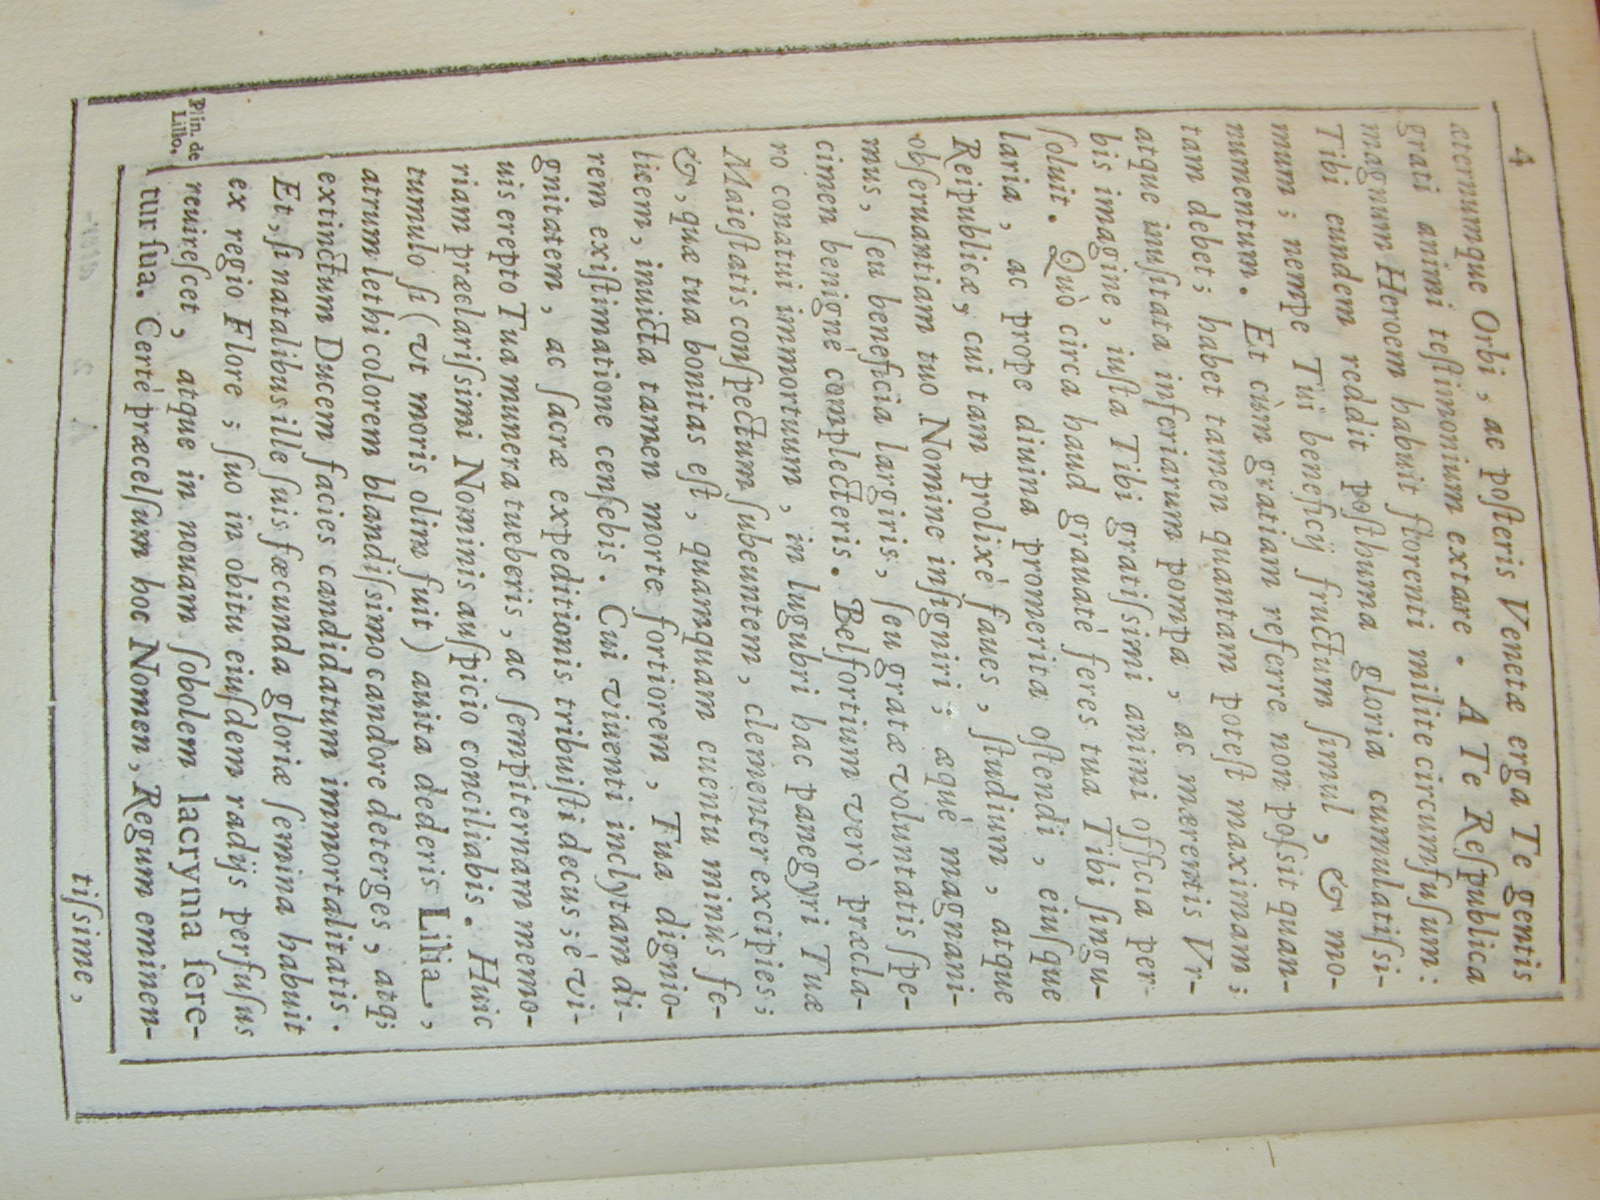 4
æternumque Orbi, ac poſteris Venetæ erga Te gentis
grati animi teſtimonium extare. A Te Reſpublica
magnum Heroem habuit florenti milite circumfuſum:
Tibi eundem reddit poſthuma gloria cumulatiſſi-
mum; nempe Tui beneficij fructum ſimul, & mo-
numentum. Et cùm gratiam referre non poſsit quan-
tam debet; habet tamen quantam poteſt maximam;
atque inuſitata inferiarum pompa, ac mærentis Vr-
bis imagine, iuſta Tibi gratiſsimi animi officia per-
ſoluit. Quò circa haud grauatè feres tua Tibi ſingu-
laria, ac prope diuina promerita oſtendi, eiuſque
Reipublicæ, cui tam prolixè faues, ſtudium, atque
obſeruantiam tuo Nomine inſigniri; æquè magnani-
mus, ſeu beneficia largiris, ſeu gratæ voluntatis ſpe-
cimen benignè complecteris. Belfortium verò præcla-
ro conatui immortuum, in lugubri hac panegyri Tuæ
Maieſtatis conſpectum ſubeuntem, clementer excipies;
&, quæ tua bonitas eſt, quamquam euentu minùs fe-
licem, inuicta tamen morte fortiorem, Tua dignio-
rem exiſtimatione cenſebis. Cui viuenti inclytam di-
gnitatem, ac ſacræ expeditionis tribuiſti decus; è vi-
uis erepto Tua munera tueberis, ac ſempiternam memo-
riam præclariſsimi Nominis auſpicio conciliabis. Huic
tumulo ſi (vt moris olim fuit) auita dederis Lilia,
atrum lethi colorem blandiſsimo candore deterges, atq;
extinctum Ducem facies candidatum immortalitatis.
Et, ſi natalibus ille ſuis fœcunda gloriæ ſemina habuit
ex regio Flore; ſuo in obitu eiuſdem radijs perfuſus
Plin. de
Lilio.
reuireſcet, atque in nouam ſobolem lacryma ſere-
tur ſua. Certè præcelſum hoc Nomen, Regum eminen-
tiſsime,